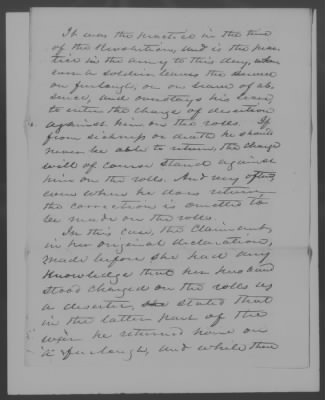 It was the practice in the time
of the Revolution, and is the prac-
tice in the army to this day, when
ever a soldier leaves the service
on furlough, or on leave of ab-
sence, and overstays his leave,
to enter the charge of desertion
against him on the rolls. If
from sickness or death he should
never be able to return, the charge
will of course stand against
him on the rolls. And very often,
even where he does return,
the correction is omitted to
be made on the rolls.
In this case, the Claimant,
in her original declaration,
made before she had any
knowledge that her husband
stood charged on the rolls as
a deserter, stated that
in the latter part of the
war he returned home on
a furlough, and while there